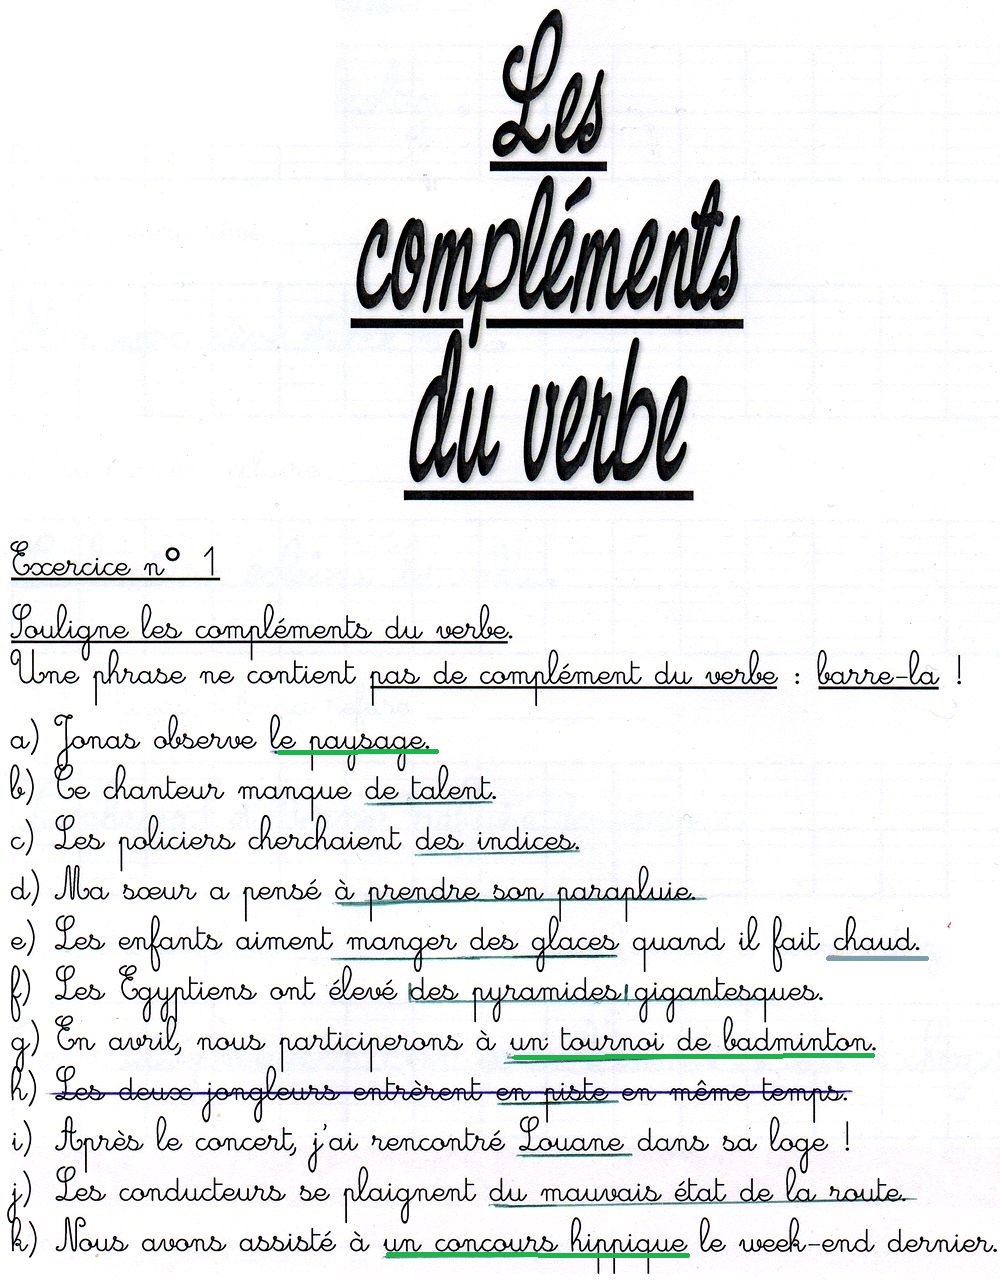 Les
compléments
du verbe
Exercice n° 1
Souligne les compléments du verbe.
Une phrase ne contient pas de complément du verbe : barre-la !
a) Jonas observe le paysage.
b) Ce chanteur manque de talent.
c) Les policiers cherchaient des indices.
d) Ma sœur a pensé à prendre son parapluie.
e) Les enfants aiment manger des glaces quand il fait chaud.
f) Les Egyptiens ont élevé des pyramides gigantesques.
g) En avril, nous participerons à un tournoi de badminton.
h) Les deux jongleurs entrèrent en piste en même temps.
i) Après le concert, j'ai rencontré Louane dans sa loge !
j) Les conducteurs se plaignent du mauvais état de la route.
k) Nous avons assisté à un concours hippique le week-end dernier.